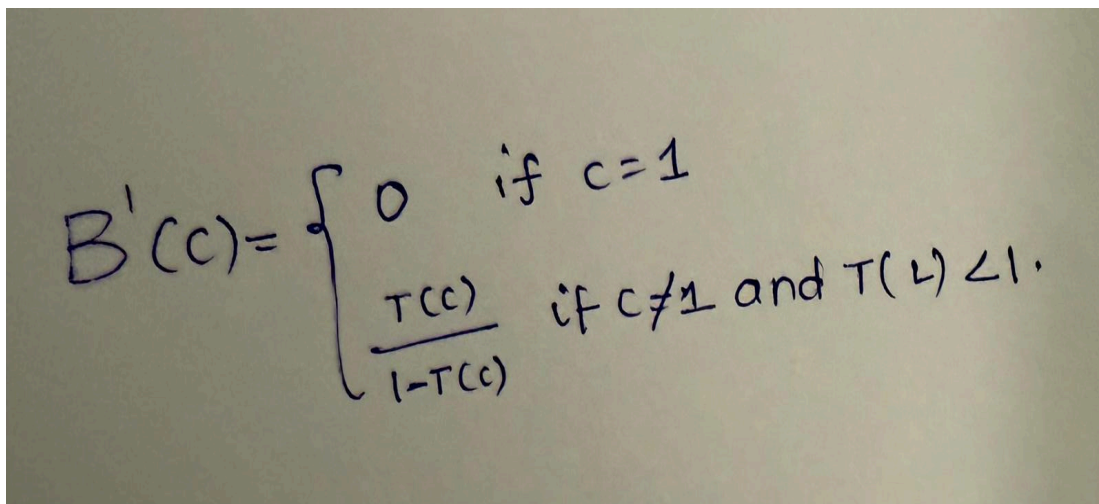 B'(C) = { 0 if c=1
T(C) / 1-T(C) if C≠1 and T(L) <1.